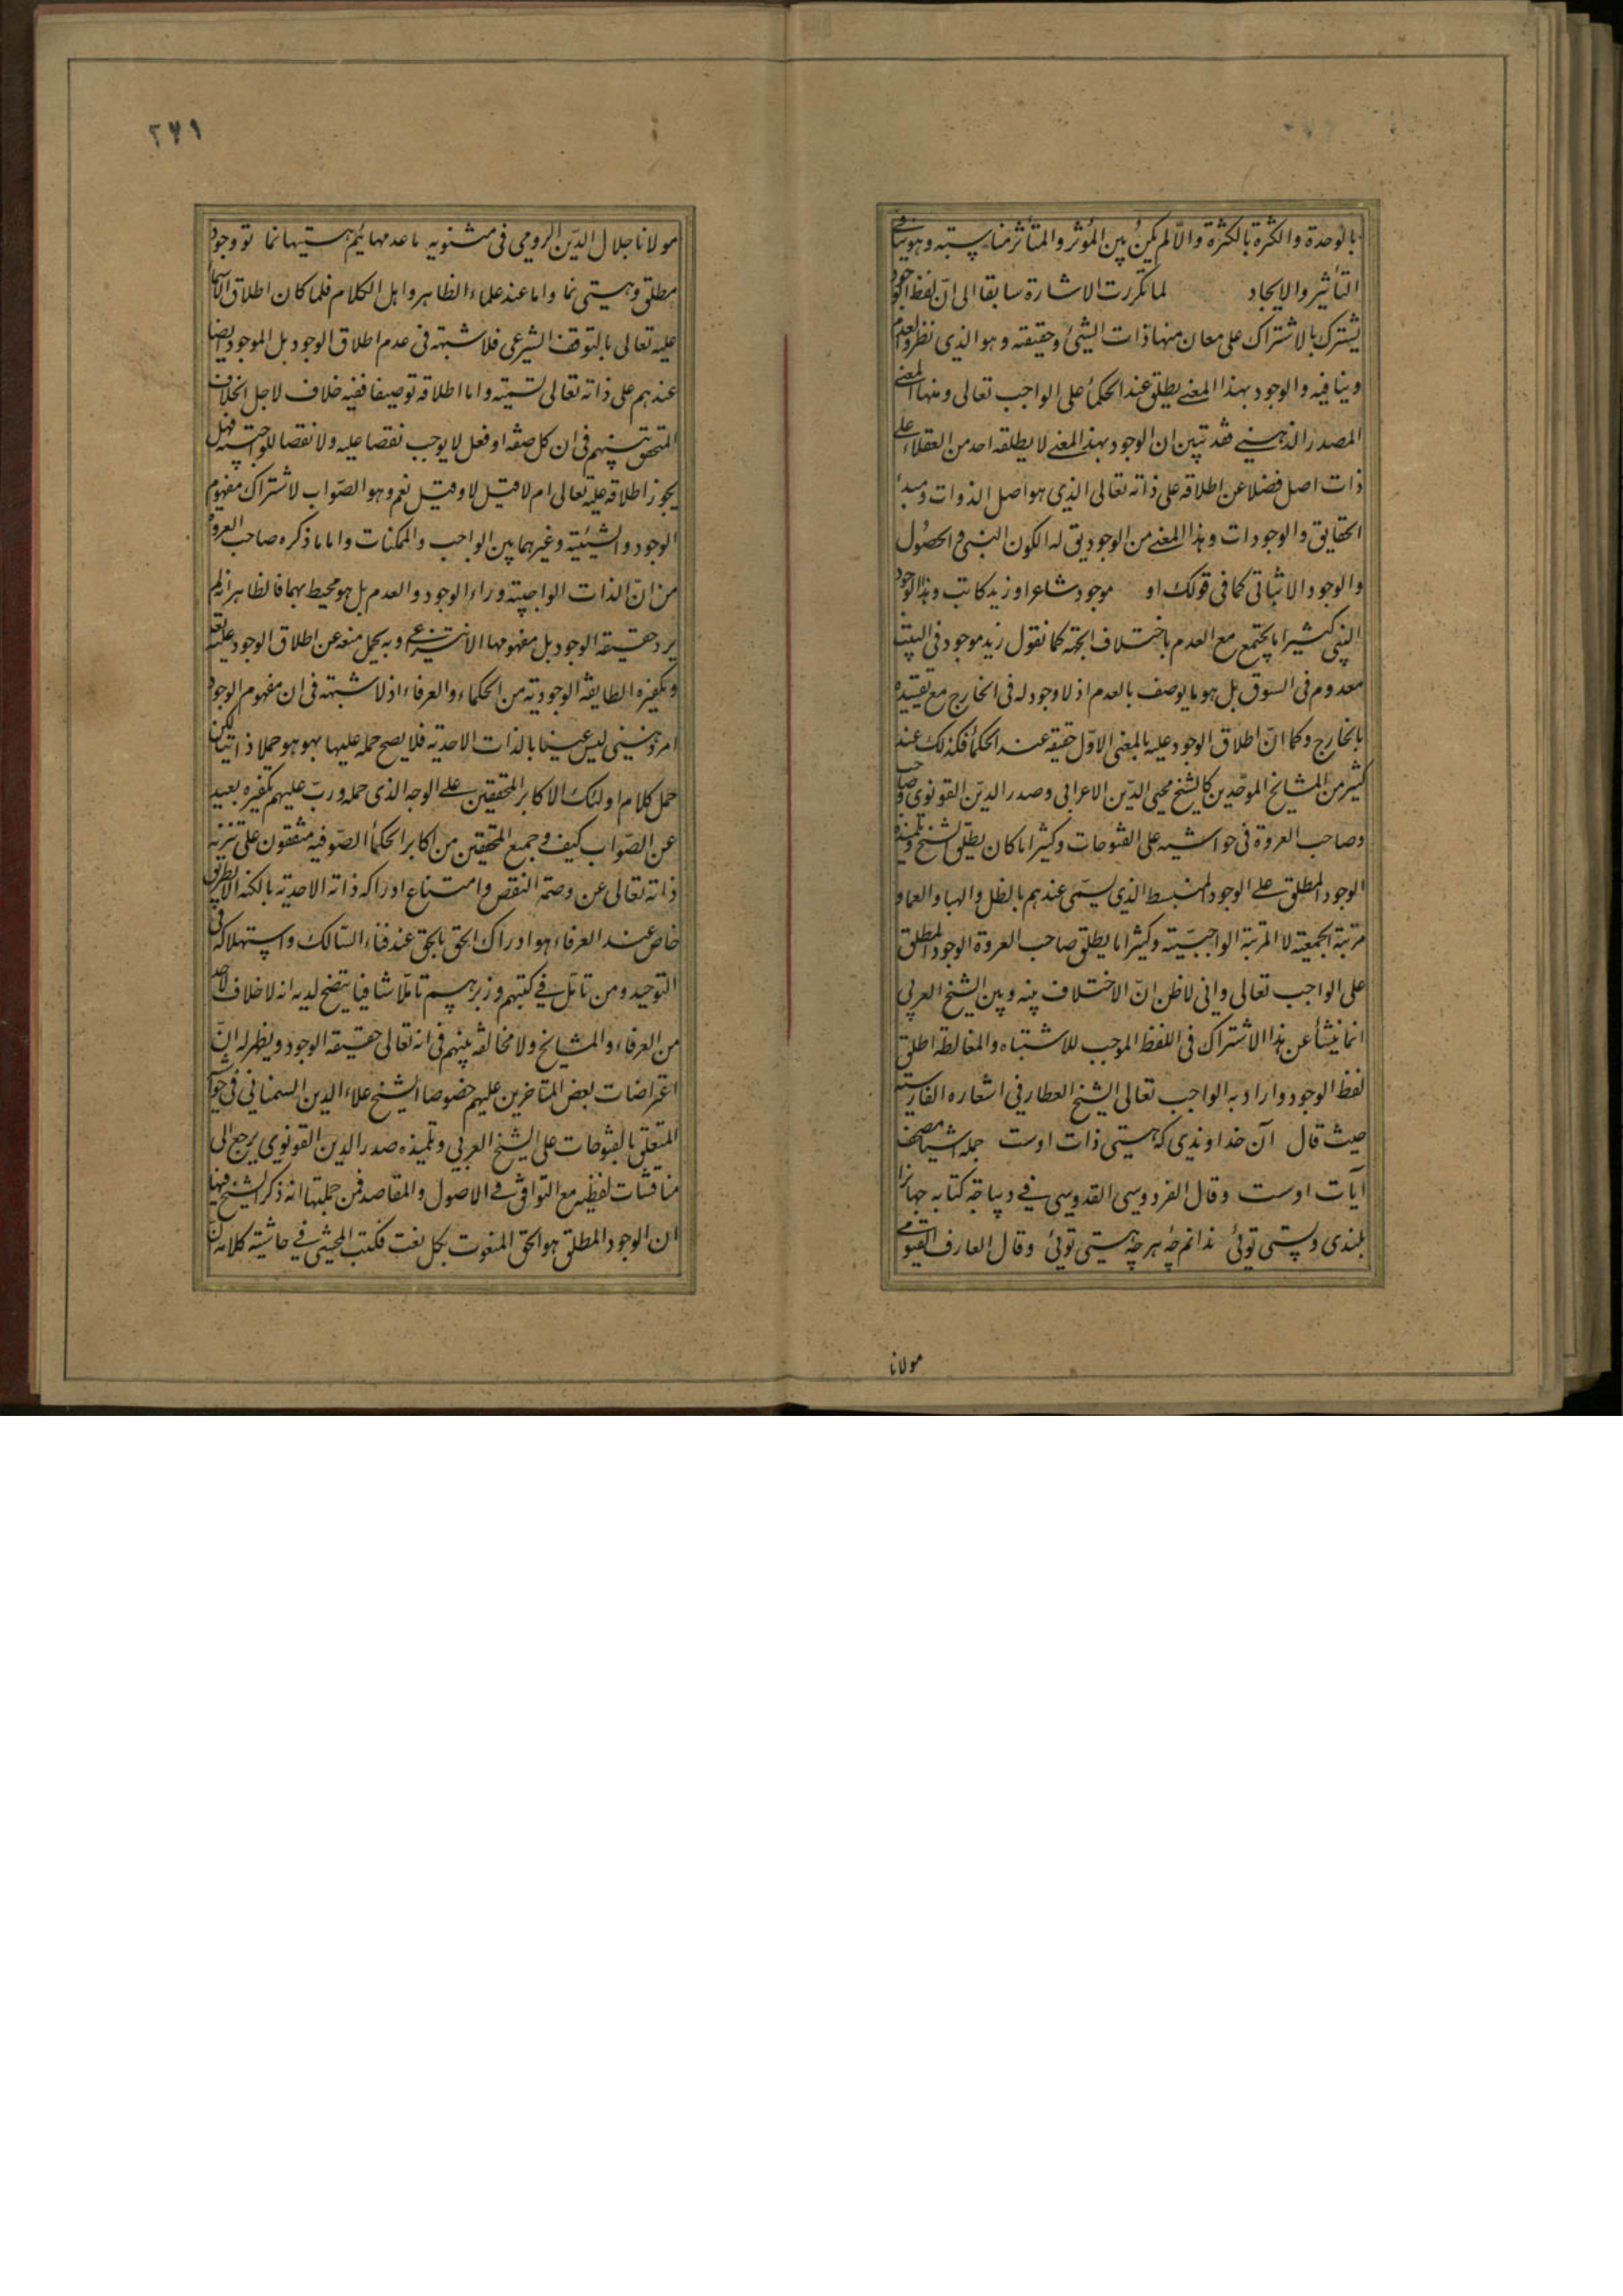 بالوحدة والكثرة بالكثرة والّا لم يكن بين المؤثر والمتأثر مناسبته وهو ينافى
التأثير والايجاد لما تكررت الاشارة سابقا الى انّ لفظ الوجود
يشترك بالاشتراك على معان منها ذات الشيئ وحقيقته وهو الذى نظر والعدم
وينافيه والوجود بهذا المعنى يطلق عند الحكمأ على الواجب تعالى ومنها المعنى
المصدر الذهنى فقد تبين ان الوجود بهذ المعنى لا يطلقه احد من العقلاء على
ذات اصل فضلا عن اطلاقه على ذاته تعالى الذى هو اصل الذوات ومبدأ
الحقايق والوجودات وهذا المعنى من الوجود يق له الكون النسبى والحصول
والوجود الاثباتى كما فى قولك او موجود شاعر او زيد كاتب وهذا الوجود
النسبى كثيرا ما يجتمع مع العدم باختلاف الجهة كما نقول زيد موجود فى البيت
معدوم فى السوق بل هو ما يوصف بالعدم اذ لا وجود له فى الخارج مع تقييده
بالخارج وكما انّ اطلاق الوجود عليه بالمعنى الاوّل حقيقه عند الحكمأ فكذلك عند
كثير من المشايخ الموحّدين كالشيخ محيى الدّين الاعرابى وصدر الدين القونوى صاحب
وصاحب العروة فى حواشيه على الفتوحات وكثيرا ما كان يطلق الشيخ وتلميذه
الوجود المطلق على الوجود المنبسط الذى يسمّى عندهم بالظل والهبا والعما و
مرتبة الجمعية لا المرتبة الواجبيّة وكثيرا ما يطلق صاحب العروة الوجود المطلق
على الواجب تعالى وانى لاظن انّ الاختلاف بينه وبين الشيخ العربى
انما ينشأ عن هذا الاشتراك فى اللفظ الموجب للاشتباه والمغالطه اطلق
لفظ الوجود واراد به الواجب تعالى الشيخ العطار فى اشعاره الفارسية
حيث قال آن خداوندى كه هستى ذات اوست جمله اشيا مصحف
آيات اوست وقال الفردوسى القدوسى فى ديباجه كتابه جهانرا
بلندى وپستى توئى ندانم چۀ هر چه هستى توئى وقال العارف القيومى
مولانا
٢٧١
مولانا جلال الدّين الرومى فى مثنويه ما عدمهائيم هستيها نما تو وجود
مطلق وهستى نما واما عند علماء الظاهر واهل الكلام فلما كان اطلاق الاسماء
عليه تعالى بالتوقف الشرعى فلا شبهته فى عدم اطلاق الوجود بل الموجود ايضا
عندهم على ذاته تعالى تسميته واما اطلاقه توصيفا ففيه خلاف لاجل الخلاف
المتحقق بينهم فى ان كل صفه او فعل لا يوجب نقصا عليه ولا نقصا للواجبيه فهل
يجوز اطلاقه عليه تعالى ام لا قيل لا وقيل نعم وهو الصّواب لاشتراك مفهوم
الوجود والشيئية وغيرهما بين الواجب والممكنات واما ما ذكره صاحب العروة
من انّ الذات الواجبيته وراء الوجود والعدم بل هو محيط بهما فالظاهر انه لم
يرد حقيقه الوجود بل مفهومها الانتزاعى وبه يحمل منعه عن اطلاق الوجود عليه تعالى
وتكفيره الطايفه الوجوديه من الحكماء والعرفاء اذ لا شبهته فى ان مفهوم الوجود
امر ذهنى ليس عينا بالذات الاحديه فلا يصح حمله عليها بهو هو حملا ذاتيا لكن
حمل كلام اولئك الاكابر المحققين على الوجه الذى حمله ورتب عليهم تكفيره بعيد
عن الصّواب كيف و جميع المحققين من اكابر الحكمأ الصّوفيه متفقون على تنزيه
ذاته تعالى عن وصمة النقص وامتناع ادراكه ذاته الاحديه بالكنه الا بطريق
خاص عند العرفاء هو ادراك الحق بالحق عند فناء السّالك واستهلاكه فى
التوحيد ومن تأمّل فى كتبهم وزبرهم تأمّلا شافيا يتضح لديه انه لا خلاف لاحد
من العرفاء والمشايخ ولا مخالفه بينهم فى انه تعالى حقيقه الوجود ويظهر له انّ
اعتراضات بعض المتاخرين عليهم خصوصا الشيخ علاء الدين السمنانى فى حواشيه
المتعلق بالفتوحات على الشيخ العربى وتلميذه صدر الدين القونوى يرجع الى
مناقشات لفظيه مع التوافق فى الاصول والمقاصد فمن جملتها انه ذكر الشيخ فيها
ان الوجود المطلق هو الحق المنعوت بكل نعت فكتب المحشى فى حاشيته كلامه انّ